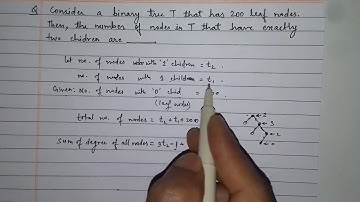 Q Consider a binary tree T that has 200 leaf nodes.
Then, the number of nodes in T that have exactly
two chidren are
let no. of nodes with '2' children = t₂
no. of nodes with 1 children = t₁
Given: No. of nodes with '0' child =
(leaf nodes)
total no. of nodes = t₂ + t₁ +
Sum of degree of all nodes = 3t₂ - 1 +